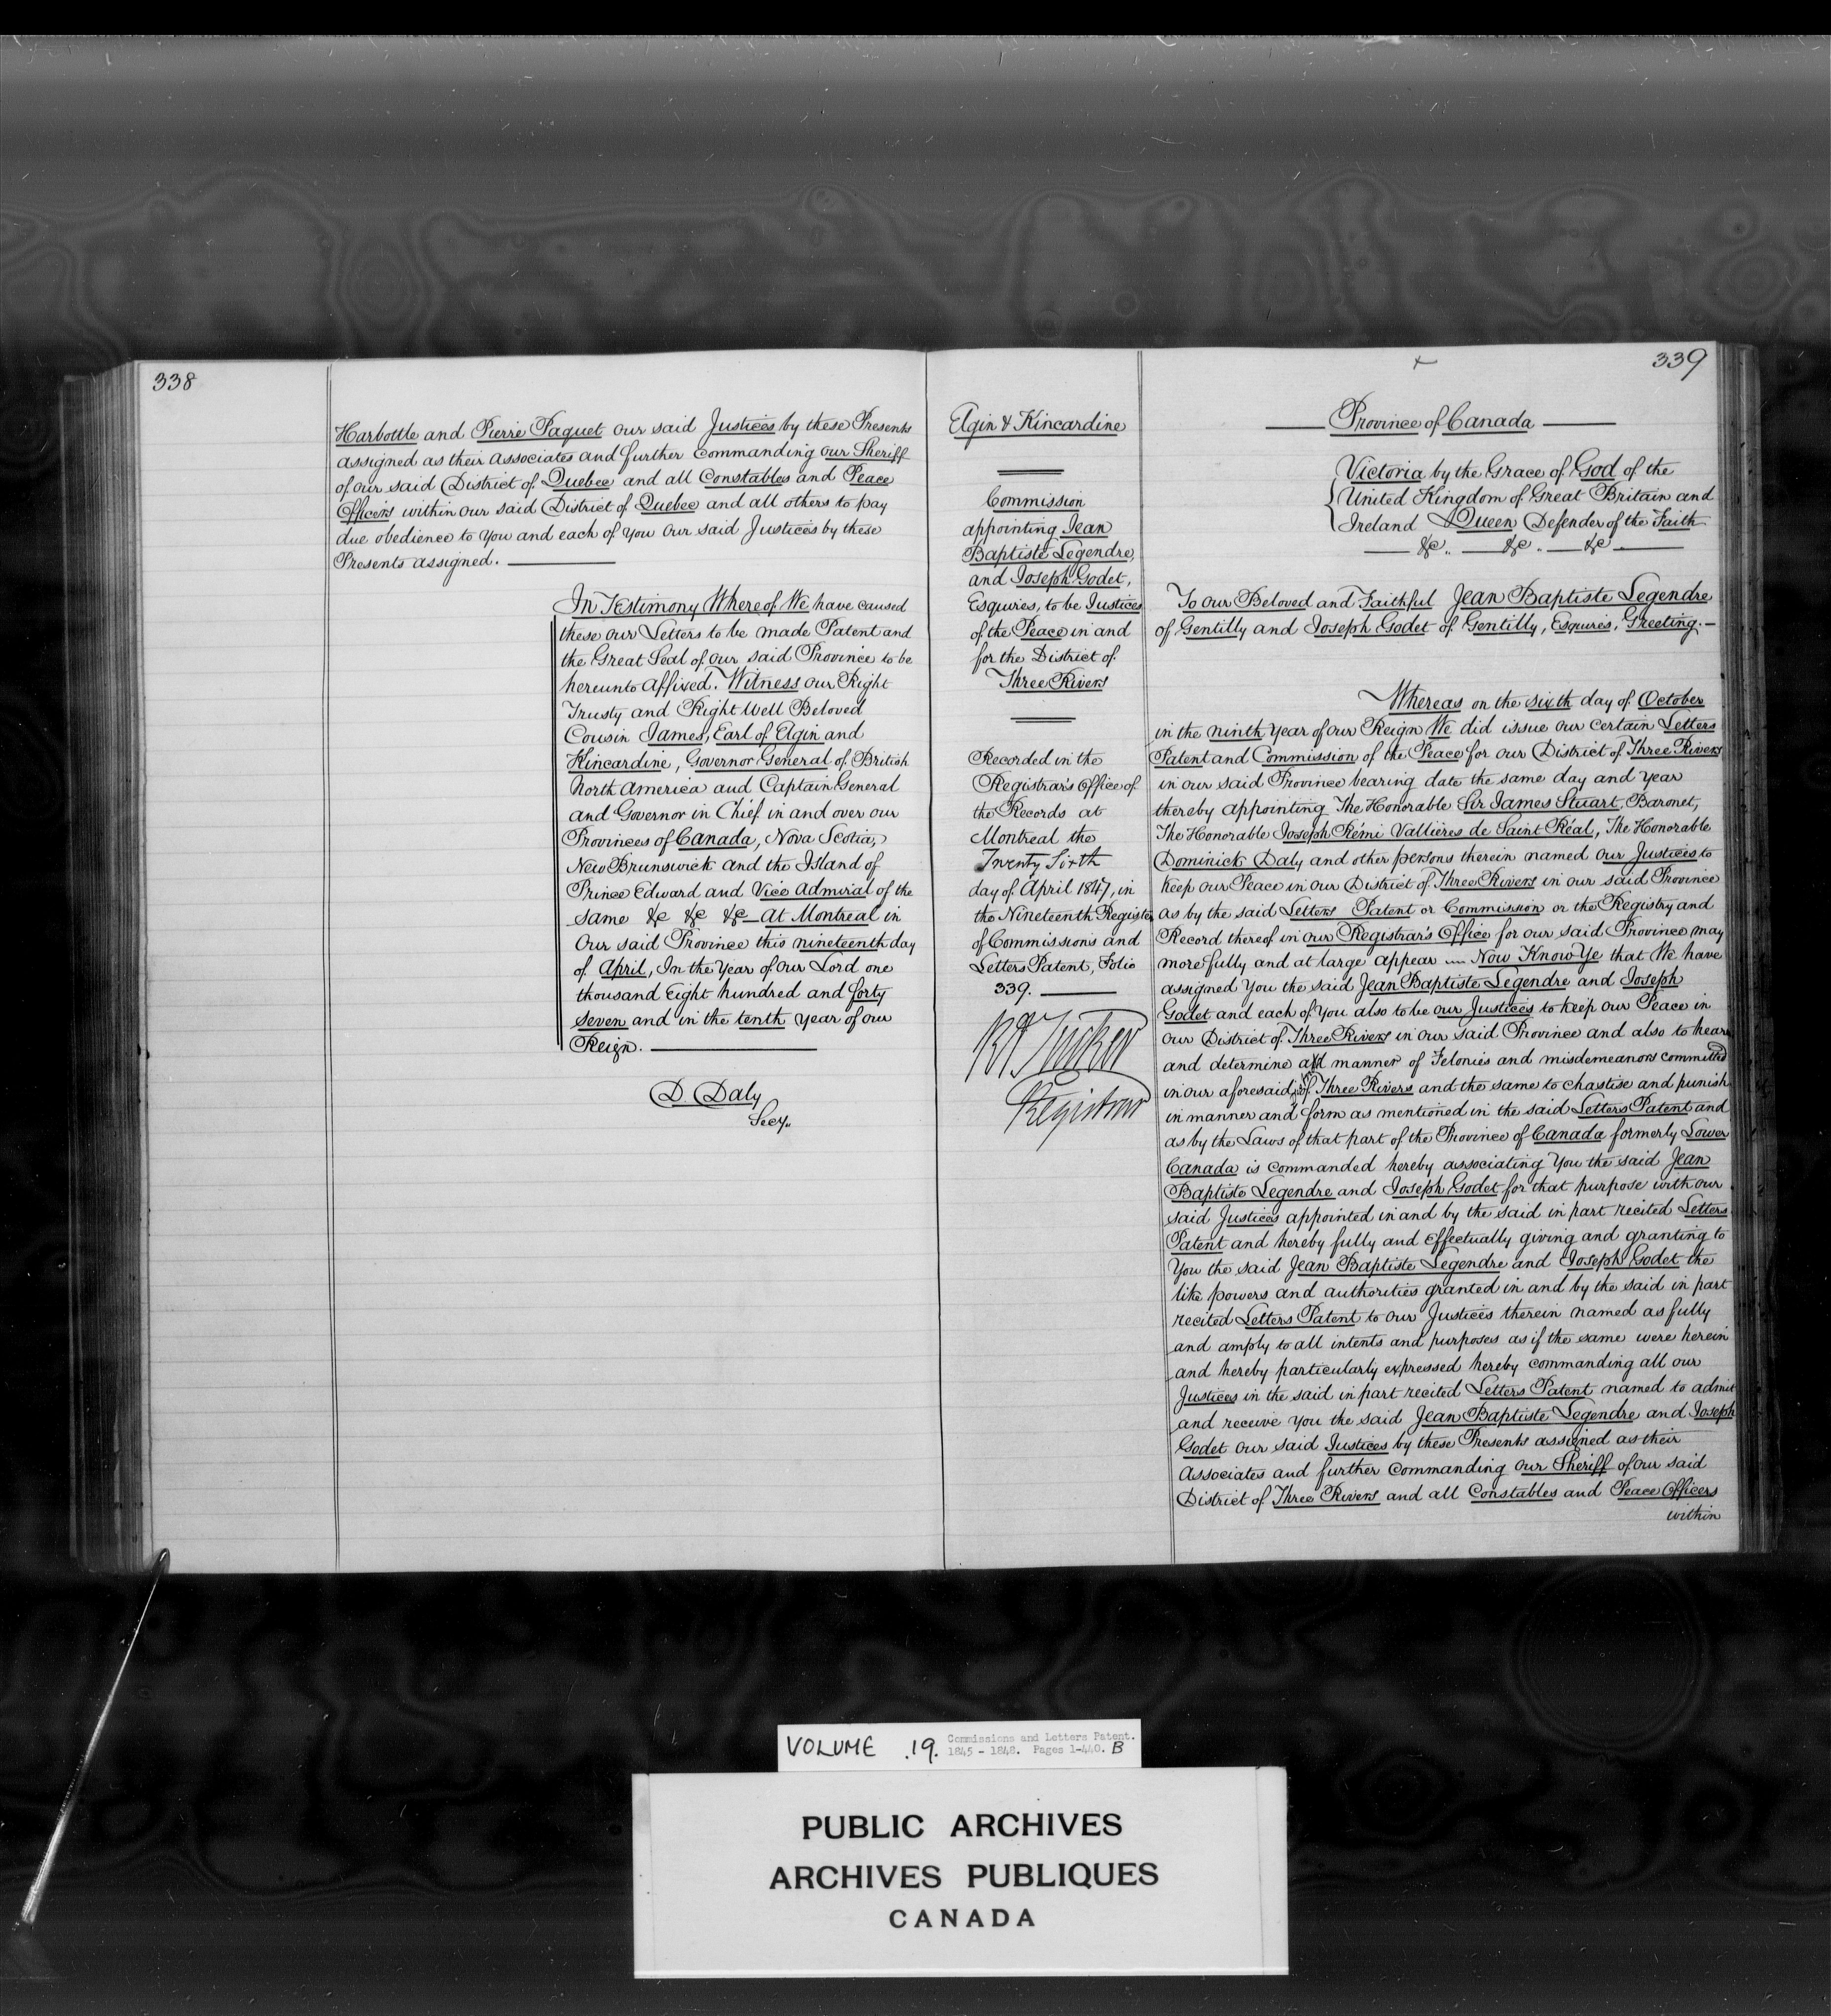 338
Harbottle and Pierre Paquet our said Justices by these Presents
assigned as their Associates and further Commanding our Sheriff
of our said District of Quebec and all Constables and Peace
Officers within our said District of Quebec and all others to pay
due obedience to You and each of You our said Justices by these
Presents assigned.
In Testimony Whereof We have caused
these our Letters to be made Patent and
the Great Seal of our said Province to be
hereunto affixed. Witness our Right
Trusty and Right Well Beloved
Cousin James, Earl of Elgin and
Kincardine, Governor General of British
North America and Captain General
and Governor in Chief in and over our
Provinces of Canada, Nova Scotia,
New Brunswick and the Island of
Prince Edward and Vice Admiral of the
same &c &c &c — At Montreal in
Our said Province this nineteenth day
of April, In the Year of Our Lord one
thousand Eight hundred and forty
seven and in the tenth year of our
Reign.
D. Daly
Secy.
Elgin & Kincardine
Commission
appointing Jean
Baptiste Legendre,
and Joseph Godet,
Esquires, to be Justices
of the Peace in and
for the District of
Three Rivers
Recorded in the
Registrar's Office of
the Records at
Montreal the
Twenty Sixth
day of April 1847, in
the Nineteenth Register
of Commissions and
Letters Patent, Folio
339.
RA Tucker
Registrar
339
Province of Canada
Victoria by the Grace of God of the
United Kingdom of Great Britain and
Ireland Queen Defender of the Faith
&c. — &c. — &c
To Our Beloved and Faithful Jean Baptiste Legendre
of Gentilly and Joseph Godet of Gentilly, Esquires, Greeting. —
Whereas on the sixth day of October
in the ninth Year of our Reign We did issue our certain Letters
Patent and Commission of the Peace for our District of Three Rivers
in our said Province bearing date the same day and Year
thereby appointing The Honorable Sir James Stuart, Baronet,
The Honorable Joseph Rémi Vallières de Saint Réal, The Honorable
Dominick Daly and other persons therein named our Justices to
keep our Peace in our District of Three Rivers in our said Province
as by the said Letters Patent or Commission or the Registry and
Record thereof in our Registrar's Office for our said Province may
more fully and at large appear — Now Know Ye that We have
assigned You the said Jean Baptiste Legendre and Joseph
Godet and each of You also to be our Justices to keep our Peace in
our District of Three Rivers in our said Province and also to hear
and determine all manner of Felonies and misdemeanors committed
in our aforesaid of Three Rivers and the same to chastise and punish
in manner and form as mentioned in the said Letters Patent and
as by the Laws of that part of the Province of Canada formerly Lower
Canada is commanded hereby associating You the said Jean
Baptiste Legendre and Joseph Godet for that purpose with our
said Justices appointed in and by the said in part recited Letters
Patent and hereby fully and effectually giving and granting to
You the said Jean Baptiste Legendre and Joseph Godet the
like powers and authorities granted in and by the said in part
recited Letters Patent to our Justices therein named as fully
and amply to all intents and purposes as if the same were herein
and hereby particularly expressed hereby commanding all our
Justices in the said in part recited Letters Patent named to admit
and receive You the said Jean Baptiste Legendre and Joseph
Godet our said Justices by these Presents assigned as their
Associates and further Commanding our Sheriff of our said
District of Three Rivers and all Constables and Peace Officers
within
VOLUME .19. Commissions and Letters Patent.
1845 - 1848. Pages 1-440. B
PUBLIC ARCHIVES
ARCHIVES PUBLIQUES
CANADA